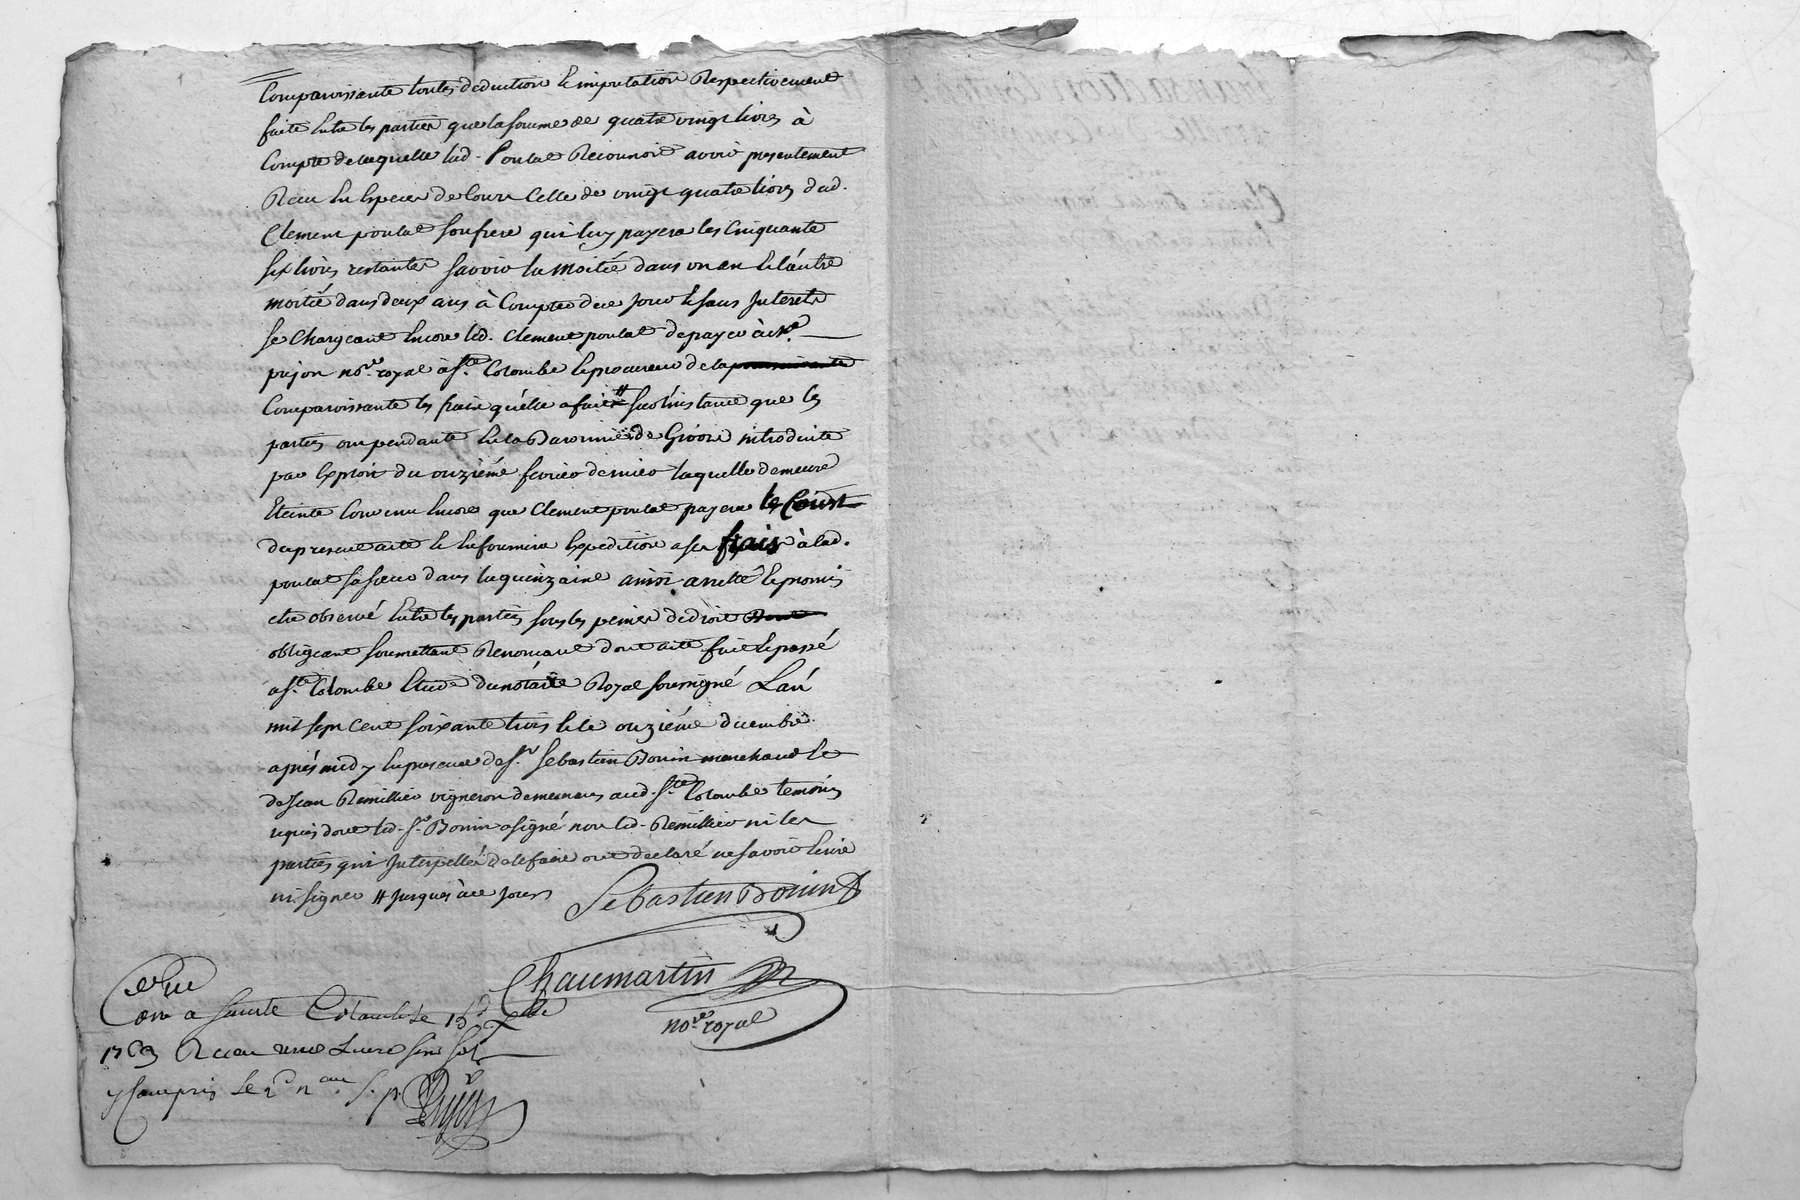 Comparoissante toutes deduction & imputation Respectivement
faite Entre les parties que la somme de quatre vingt livres à
Compte de laquelle lad. Poulat Reconnoit avoir presentement
Recu En Espèces de Cours Celle de vingt quatre livres dud.
Clement poulat son frere qui luy payera les Cinquante
six livres restantes savoir la moitié dans un an & l'autre
moitié dans deux ans à Compter de ce Jour & sans Interets
se Chargeant Encore led. Clement poulat de payer à Me
prejon nore royal à Ste Colombe & procureur de la
Comparoissante les frais qu'elle a fait # sur l'instance que les
parties ont pendante En la Baronnie de Givors introduite
par Exploit du onzième fevrier dernier laquelle demeure
Eteinte Convenu Encore que Clement poulat payera le Coust
du present acte & En fournira Expedition a ses frais à lad.
poulat sa soeur dans la quinzaine ainsi arresté & promis
etre observé Entre les parties sous les peines de droit
obligeant soumettant Renoncant dont acte fait & passé
a Ste Colombe Etude du notaire Royal soussigné L'an
mil sept Cent soixante trois & le onzième decembre
après midy En presence de Sr Sebastien Bonin marchand &
de Jean Remillier vigneron demeurans aud. Ste Colombe temoins
requis dont led. Sr Bonin a signé non led. Remillier ni les
parties qui Interpellés de le faire ont declaré ne savoir Ecrire
ni signer # Jusques à ce Jour
Sebastien Bonin
Chaumartin
nore royal
Colle a Sainte Colombe Le 15d Xbre
1763 Recu une Livre six sols
y Compris Le